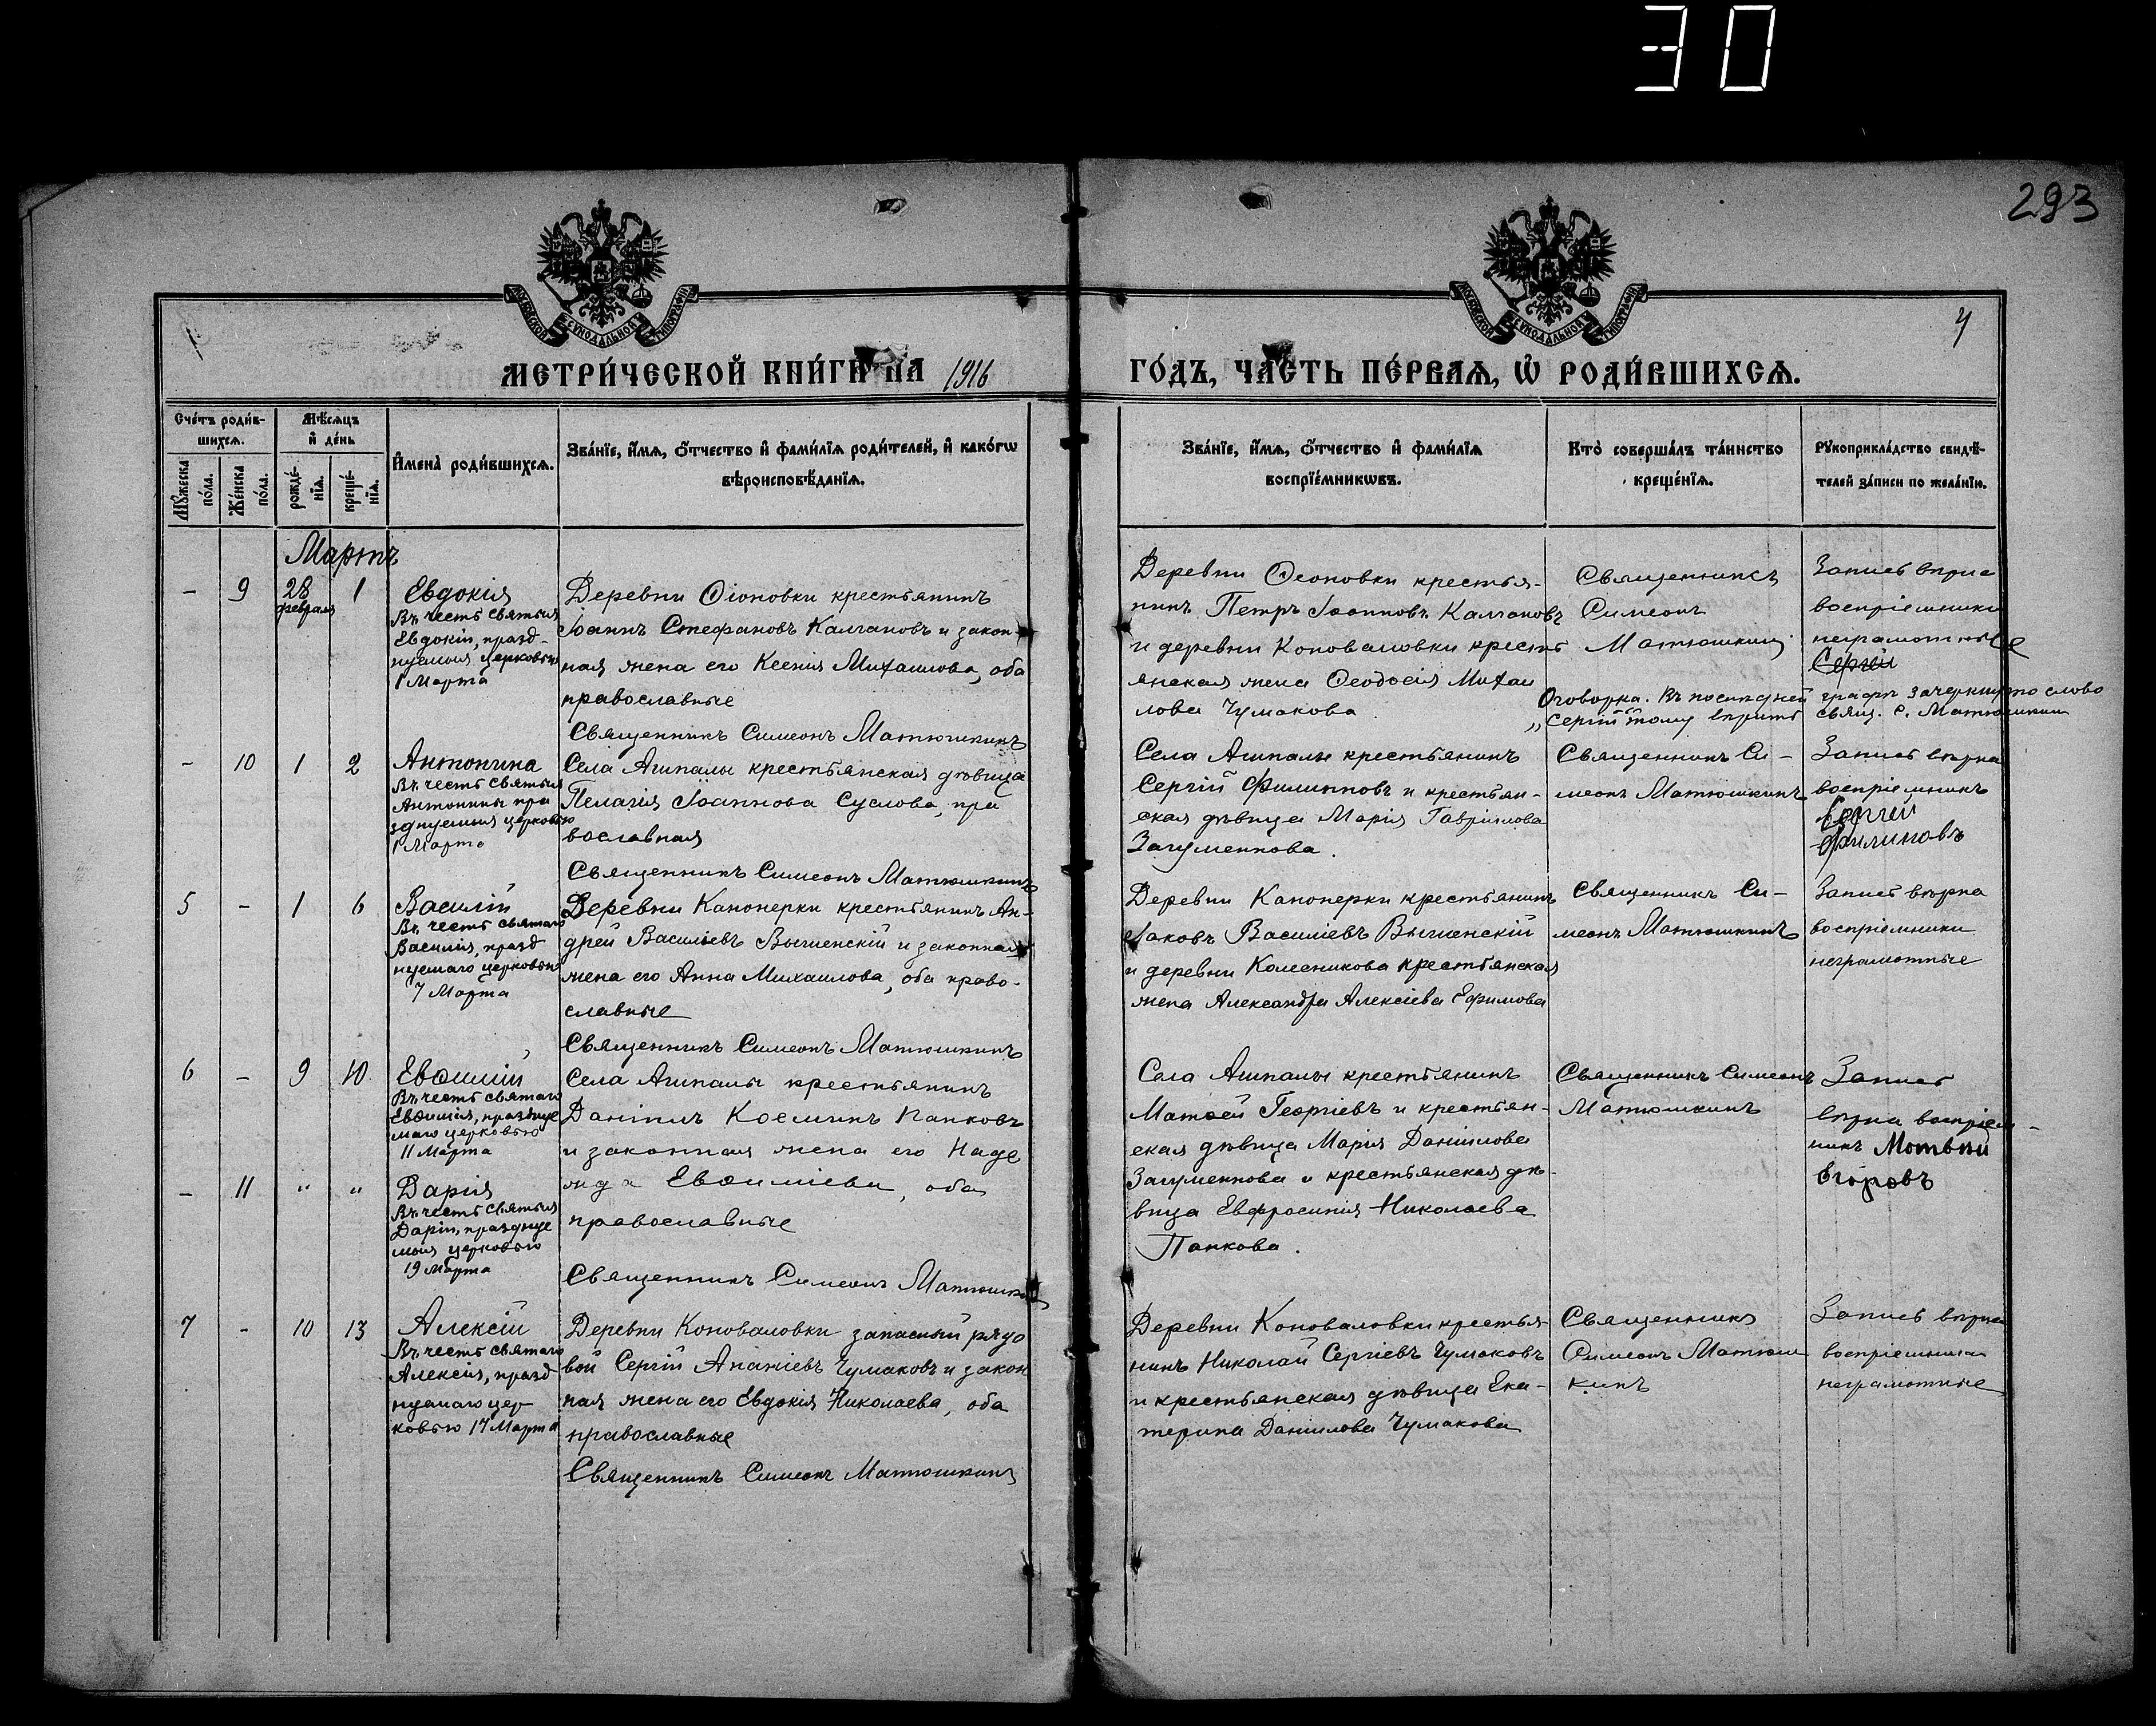 30
293
МОСКОВСКОЙ СѴНОДАЛЬНОЙ ТИПОГРАФІИ
МОСКОВСКОЙ СѴНОДАЛЬНОЙ ТИПОГРАФІИ
4
МЕТРИ́ЧЕСКОЙ КНИ́ГИ НА 1916
ГО́ДЪ, ЧА́СТЬ ПЕ́РВАѦ, Ѡ҆ РОДИ́ВШИХСѦ.
Сче́тъ роди́в-
шихсѧ.
Мꙋжеска по́ла.
Же́нска по́ла.
Мѣ́сѧцъ
и҆ де́нь
рожде́-
нїѧ.
креще́-
нїѧ.
И҆мена̀ роди́вшихсѧ.
Зва́нїе, и҆́мѧ, ѻ҆́тчество и҆ фами́лїѧ роди́телей, и҆ како́гѡ
вѣроисповѣ́данїѧ.
Зва́нїе, и҆́мѧ, ѻ҆́тчество и҆ фами́лїѧ
воспрїе́мникѡвъ.
Кто̀ соверша́лъ та́инство
креще́нїѧ.
Рꙋкоприкла́дство свидѣ́-
телей за́писи по жела́нїю.
Мартъ
- 9 28 февраля 1
Евдокія
Въ честь святыя
Евдокіи, празд-
нуемыя церковью
1 Марта
Деревни Ѳіоновки крестьянинъ
Іоаннъ Стефановъ Калгановъ и закон-
ная жена его Ксенія Михаилова, оба
православные
Священникъ Симеонъ Матюшкинъ
Деревни Ѳеоновки крестья-
нинъ Петръ Іоанновъ Калгановъ
и деревни Коноваловки кресть
янская жена Ѳеодосія Михаи
лова Чумакова
Священникъ
Симеонъ
Матюшкинъ
Запись вѣрна
воспріемники
неграмотные
Сергѣй
Оговорка. Въ послѣдней графѣ зачеркнуто слово
„Сергѣй" тому вѣрить свящ. С. Матюшкин
- 10 1 2
Антонина
Въ честь святыя
Антонины пра
зднуемыя церковью
1 Марта
Села Ашпалы крестьянская дѣвица
Пелагія Іоаннова Суслова, пра
вославная
Священникъ Симеонъ Матюшкинъ
Села Ашпалы крестьянинъ
Сергій Филипповъ и крестьян-
ская дѣвица Марія Гавриилова
Загуменнова.
Священникъ Си-
меонъ Матюшкинъ
Запись вѣрна
воспріемникъ
Сергѣй
Филиповъ
5 - 1 6
Василій
Въ честь святаго
Василія, празд
нуемаго церковью
7 Марта
Деревни Канонерки крестьянинъ Ан-
дрей Василіевъ Вышенскій и законная
жена его Анна Михаилова, оба право-
славные
Священникъ Симеонъ Матюшкинъ
Деревни Канонерки крестьянинъ
Іаковъ Василіевъ Вышенскій
и деревни Колесникова крестьянская
жена Александра Алексіева Ефимова
Священникъ Си-
меонъ Матюшкинъ
Запись вѣрна
воспріемники
неграмотные
6 - 9 10
Евѳимій
Въ честь святаго
Евѳимія, праздуе
маго церковью
11 Марта
Села Ашпалы крестьянинъ
Даніилъ Косминъ Папковъ
и законная жена его Наде
жда Евѳиміева, оба
православные
Священникъ Симеонъ Матюшкин
Села Ашпалы крестьянинъ
Матѳей Георгіевъ и крестьян-
ская дѣвица Марія Даніилова
Загуменнова и крестьянская дѣ-
вица Евфросинія Николаева
Папкова.
Священникъ Симеонъ
Матюшкинъ
Запись
вѣрна воспріем-
никъ Мотвѣй
Егоровъ
- 11 " "
Дарія
Въ честь святыя
Даріи, празднуе
мыя церковью
19 Марта
7 - 10 13
Алексій
Въ честь святаго
Алексія, празд
нуемаго цер
ковью 17 Марта
Деревни Коноваловки запасный рядо
вой Сергій Ананіевъ Чумаковъ и закон
ная жена его Евдокія Николаева, оба
православные
Священникъ Симеонъ Матюшкинъ
Деревни Коноваловки крестья-
нинъ Николай Сергіевъ Чумаковъ
и крестьянская дѣвица Ека-
терина Даніилова Чумакова
Священникъ
Симеонъ Матюш
кинъ
Запись вѣрна
воспріемники
неграмотные